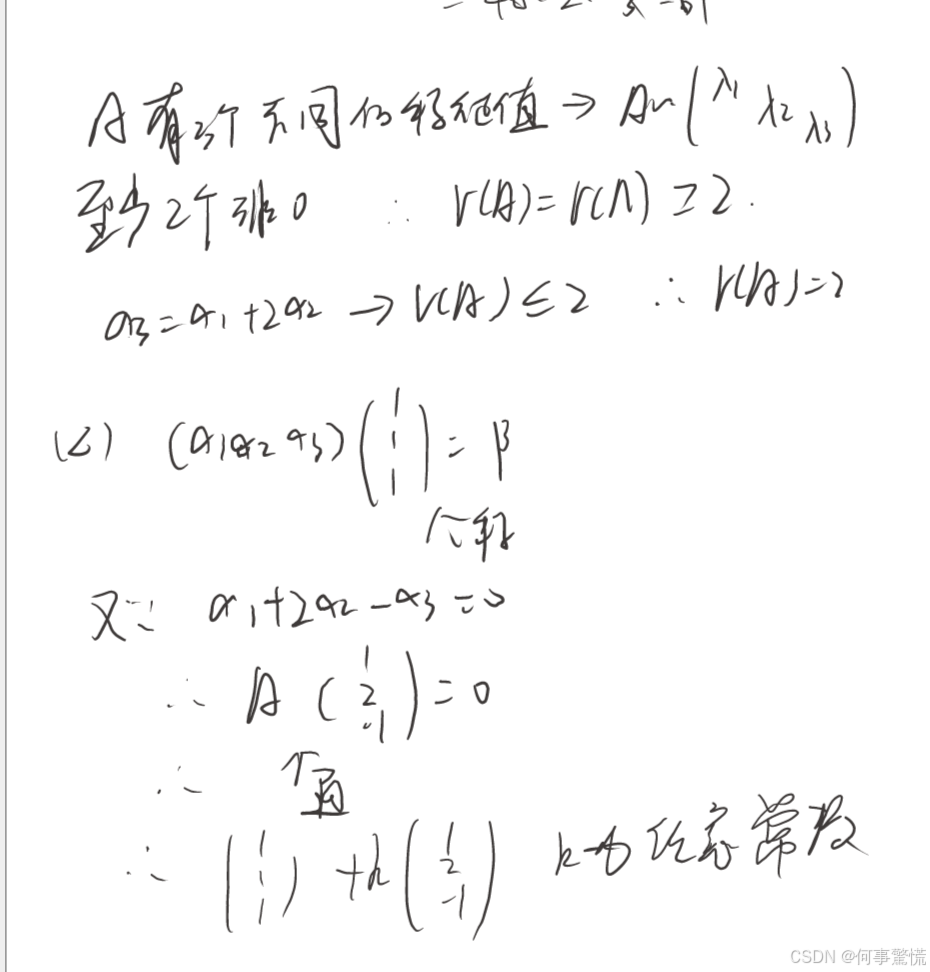 A有3个不同的特征值 → A~(λ1 λ2 λ3)
至少2个非0 ∴ r(A)=r(Λ)≥2.
α3=α1+2α2 → r(A)≤2 ∴ r(A)=2
(2) (α1α2 α3)(1 1 1)=β
个解
又∵ α1+2α2-α3=0
∴ A(1 2 -1)=0
∴ 通
∴ (1 1 1)+k(1 2 -1) k为任意常数
CSDN @何事驚慌